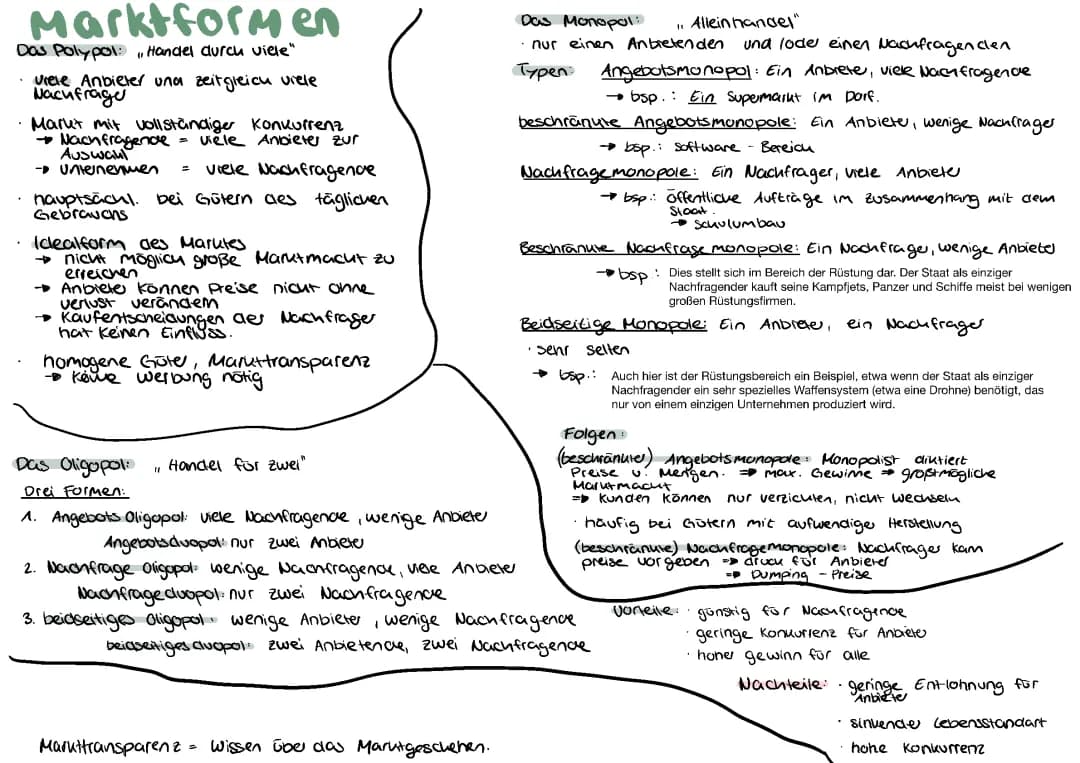 Marktformen
Das Polypol: „Handel durch viele"
· viele Anbieter und zeitgleich viele
Nachfrager
· Markt mit vollständiger Konkurrenz
→ Nachfragende = viele Anbieter zur
Auswahl
→ Unternehmen = viele Nachfragende
· hauptsächl. bei Gütern des täglichen
Gebrauchs
· Idealform des Marktes
→ nicht möglich große Marktmacht zu
erreichen
→ Anbieter können Preise nicht ohne
verlust verändern
→ Kaufentscheidungen der Nachfrager
hat keinen Einfluss.
· homogene Güter, Markttransparenz
→ keine Werbung nötig
Das Oligopol: „Handel für zwei"
Drei Formen:
1. Angebots Oligopol: viele Nachfragende, wenige Anbieter
Angebotsduopol: nur zwei Anbieter
2. Nachfrage Oligopol: wenige Nachfragende, viele Anbieter
Nachfrageduopol: nur zwei Nachfragende
3. beidseitiges Oligopol: wenige Anbieter, wenige Nachfragende
beidseitiges duopol: zwei Anbietende, zwei Nachfragende
Markttransparenz = Wissen über das Marktgeschehen.
Das Monopol: „Alleinhandel"
· nur einen Anbietenden und/oder einen Nachfragenden
Typen: Angebotsmonopol: Ein Anbieter, viele Nachfragende
→ bsp.: Ein Supermarkt im Dorf.
beschränkte Angebotsmonopole: Ein Anbieter, wenige Nachfrager
→ bsp.: Software - Bereich
Nachfragemonopole: Ein Nachfrager, viele Anbieter
→ bsp.: öffentliche Aufträge im Zusammenhang mit dem
Staat.
→ Schulumbau
Beschränkte Nachfrage monopole: Ein Nachfrager, wenige Anbieter
→ bsp: Dies stellt sich im Bereich der Rüstung dar. Der Staat als einziger
Nachfragender kauft seine Kampfjets, Panzer und Schiffe meist bei wenigen
großen Rüstungsfirmen.
Beidseitige Monopole: Ein Anbieter, ein Nachfrager
· sehr selten
→ bsp.: Auch hier ist der Rüstungsbereich ein Beispiel, etwa wenn der Staat als einziger
Nachfragender ein sehr spezielles Waffensystem (etwa eine Drohne) benötigt, das
nur von einem einzigen Unternehmen produziert wird.
Folgen:
(beschränkte) Angebotsmonopole: Monopolist diktiert
Preise u. Mengen. ⇒ max. Gewinne ⇒ größtmögliche
Marktmacht
⇒ Kunden können nur verzichten, nicht wechseln
· häufig bei Gütern mit aufwendiger Herstellung
(beschränkte) Nachfragemonopole: Nachfrager kann
preise vorgeben ⇒ druck für Anbieter
⇒ Dumping - Preise
Vorteile: · günstig für Nachfragende
· geringe Konkurrenz für Anbieter
· hoher gewinn für alle
Nachteile: · geringe Entlohnung für
Anbieter
· sinkender Lebensstandart
· hohe Konkurrenz